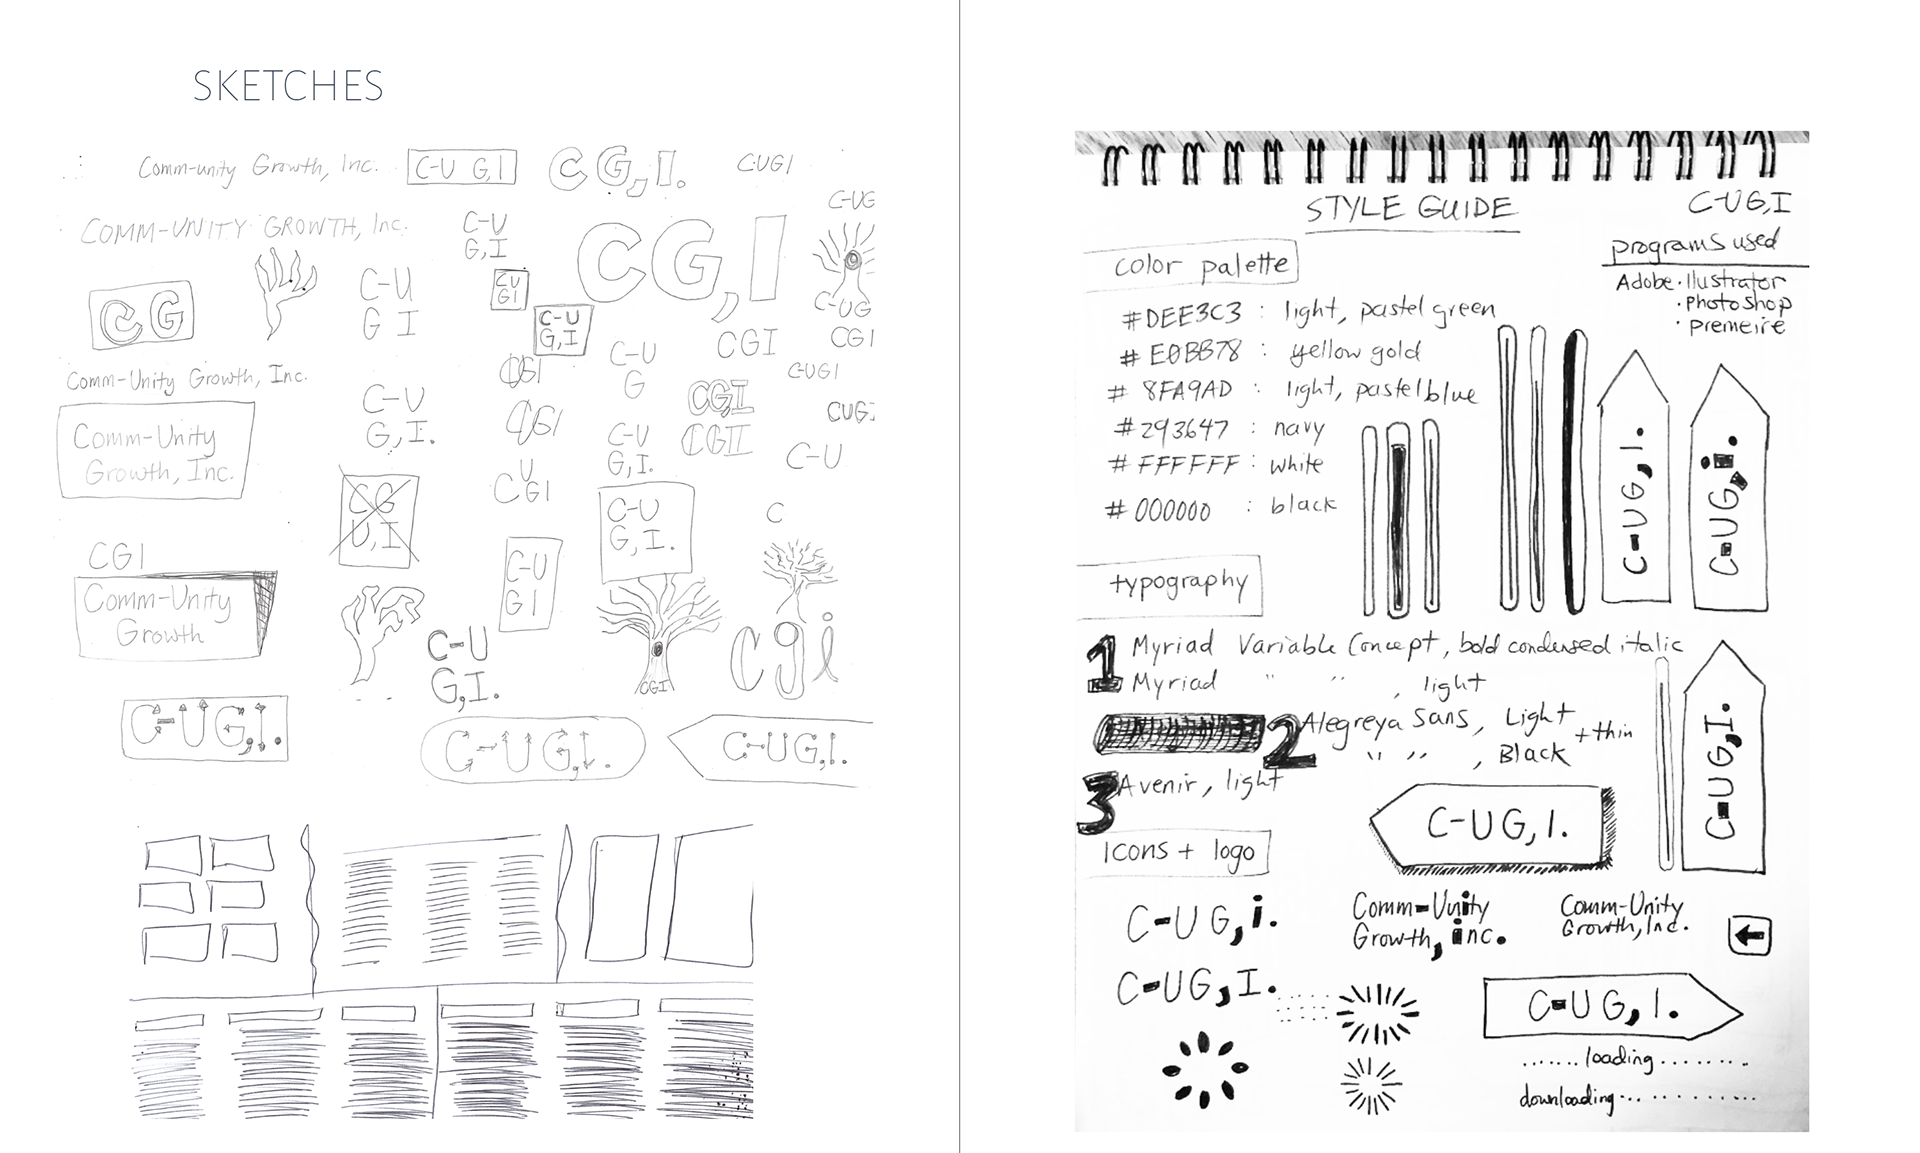 SKETCHES
Comm-unity Growth, Inc.
C-U G,I
CG,I.
CUGI
C-UG
COMM-UNITY GROWTH, Inc.
C-U
G,I
CG,I
C-UG
CG
C-U
G I
CU
GI
C-U
G,I
CGI
CGI
Comm-Unity Growth, Inc.
CGI
C-U
G
CUGI
C-U
G,I.
CGI
CGI
CUGI
Comm-Unity
Growth, Inc.
CGI
C-U
G,I.
CGI
C-U
CG
U,I
U
CGI
C-U
G,I.
C
CGI
Comm-Unity
Growth
C-U
GI
C-U
G,I.
CGI
cgi
C-UG,I.
C-UG,I.
C-UG,I.
STYLE GUIDE
C-UG,I
programs used
Adobe · Illustrator
· Photoshop
· premeire
color palette
#DEE3C3 : light, pastel green
#E0BB78 : yellow gold
#8FA9AD : light, pastel blue
#293647 : navy
#FFFFFF : white
#000000 : black
C-UG,I.
C-UG,i.
typography
1 Myriad Variable Concept, bold condensed italic
Myriad " " , light
2 Alegreya Sans, Light + thin
" " , Black
3 Avenir, light
C-UG,I.
C-UG,I.
Icons + logo
C-UG,i.
Comm-Unity
Growth, inc.
Comm-Unity
Growth, Inc.
C-UG,I.
C-UG,I.
.......loading........
downloading..........